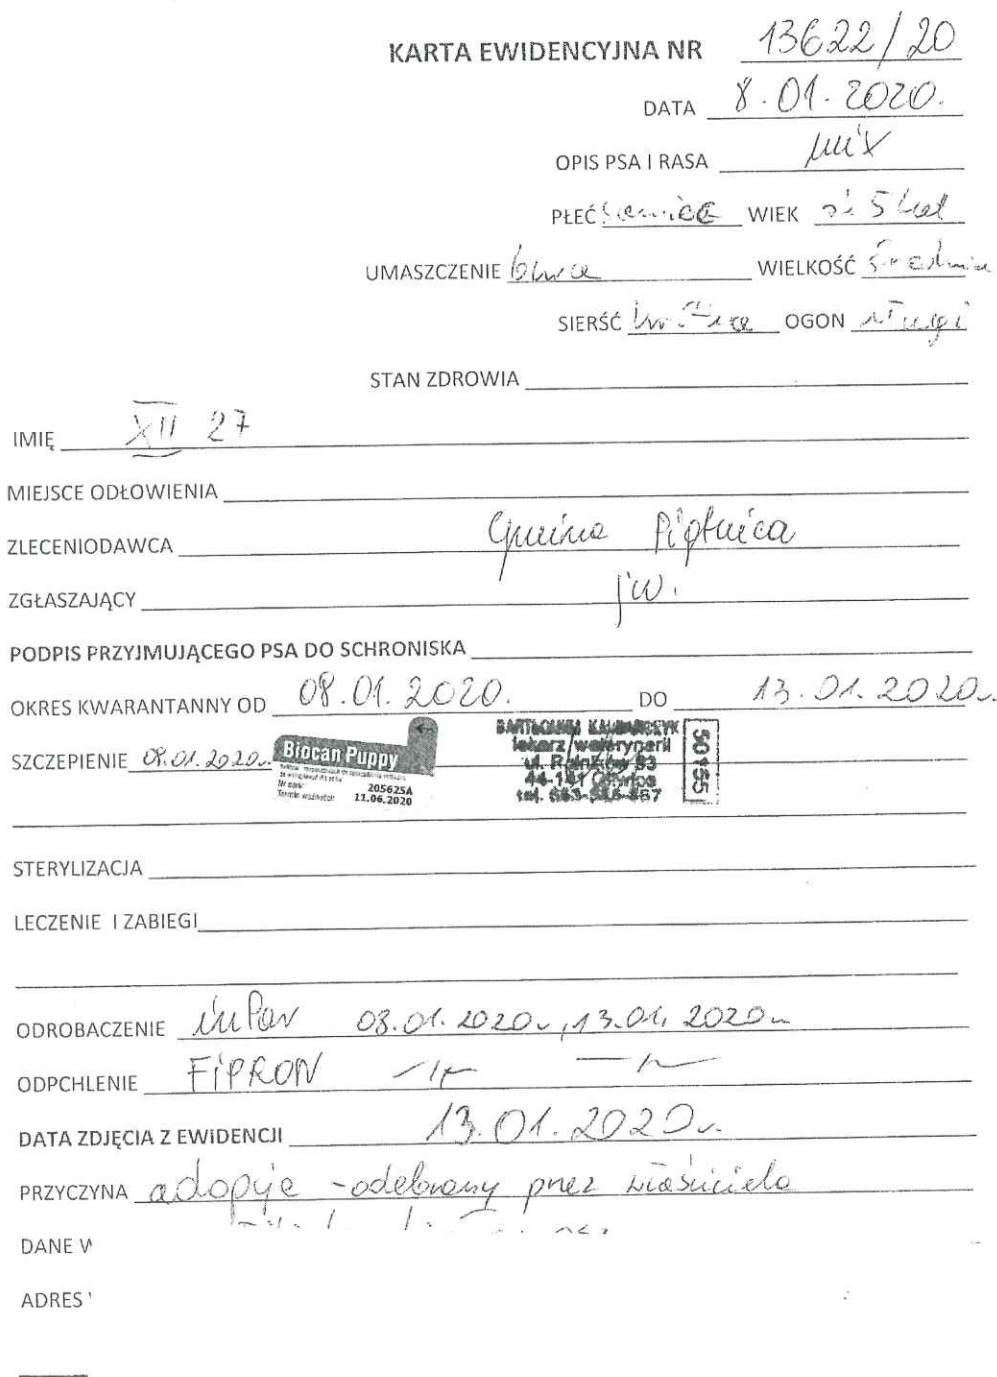 KARTA EWIDENCYJNA NR 13622/20
DATA 8.01.2020.
OPIS PSA I RASA mix
PŁEĆ samica WIEK 5 lat
UMASZCZENIE WIELKOŚĆ średnia
SIERŚĆ krótka OGON długi
STAN ZDROWIA
IMIĘ XII 27
MIEJSCE ODŁOWIENIA
ZLECENIODAWCA Gmina
ZGŁASZAJĄCY jw.
PODPIS PRZYJMUJĄCEGO PSA DO SCHRONISKA
OKRES KWARANTANNY OD 08.01.2020. DO 13.01.2020r.
SZCZEPIENIE 08.01.2020r. Biocan Puppy
205625A
11.06.2020
lekarz weterynarii
50155
STERYLIZACJA
LECZENIE I ZABIEGI
ODROBACZENIE 08.01.2020r, 13.01.2020r
ODPCHLENIE FIPRON -11- -11-
DATA ZDJĘCIA Z EWIDENCJI 13.01.2020r.
PRZYCZYNA adopcje - odebrany przez właściciela
DANE W
ADRES